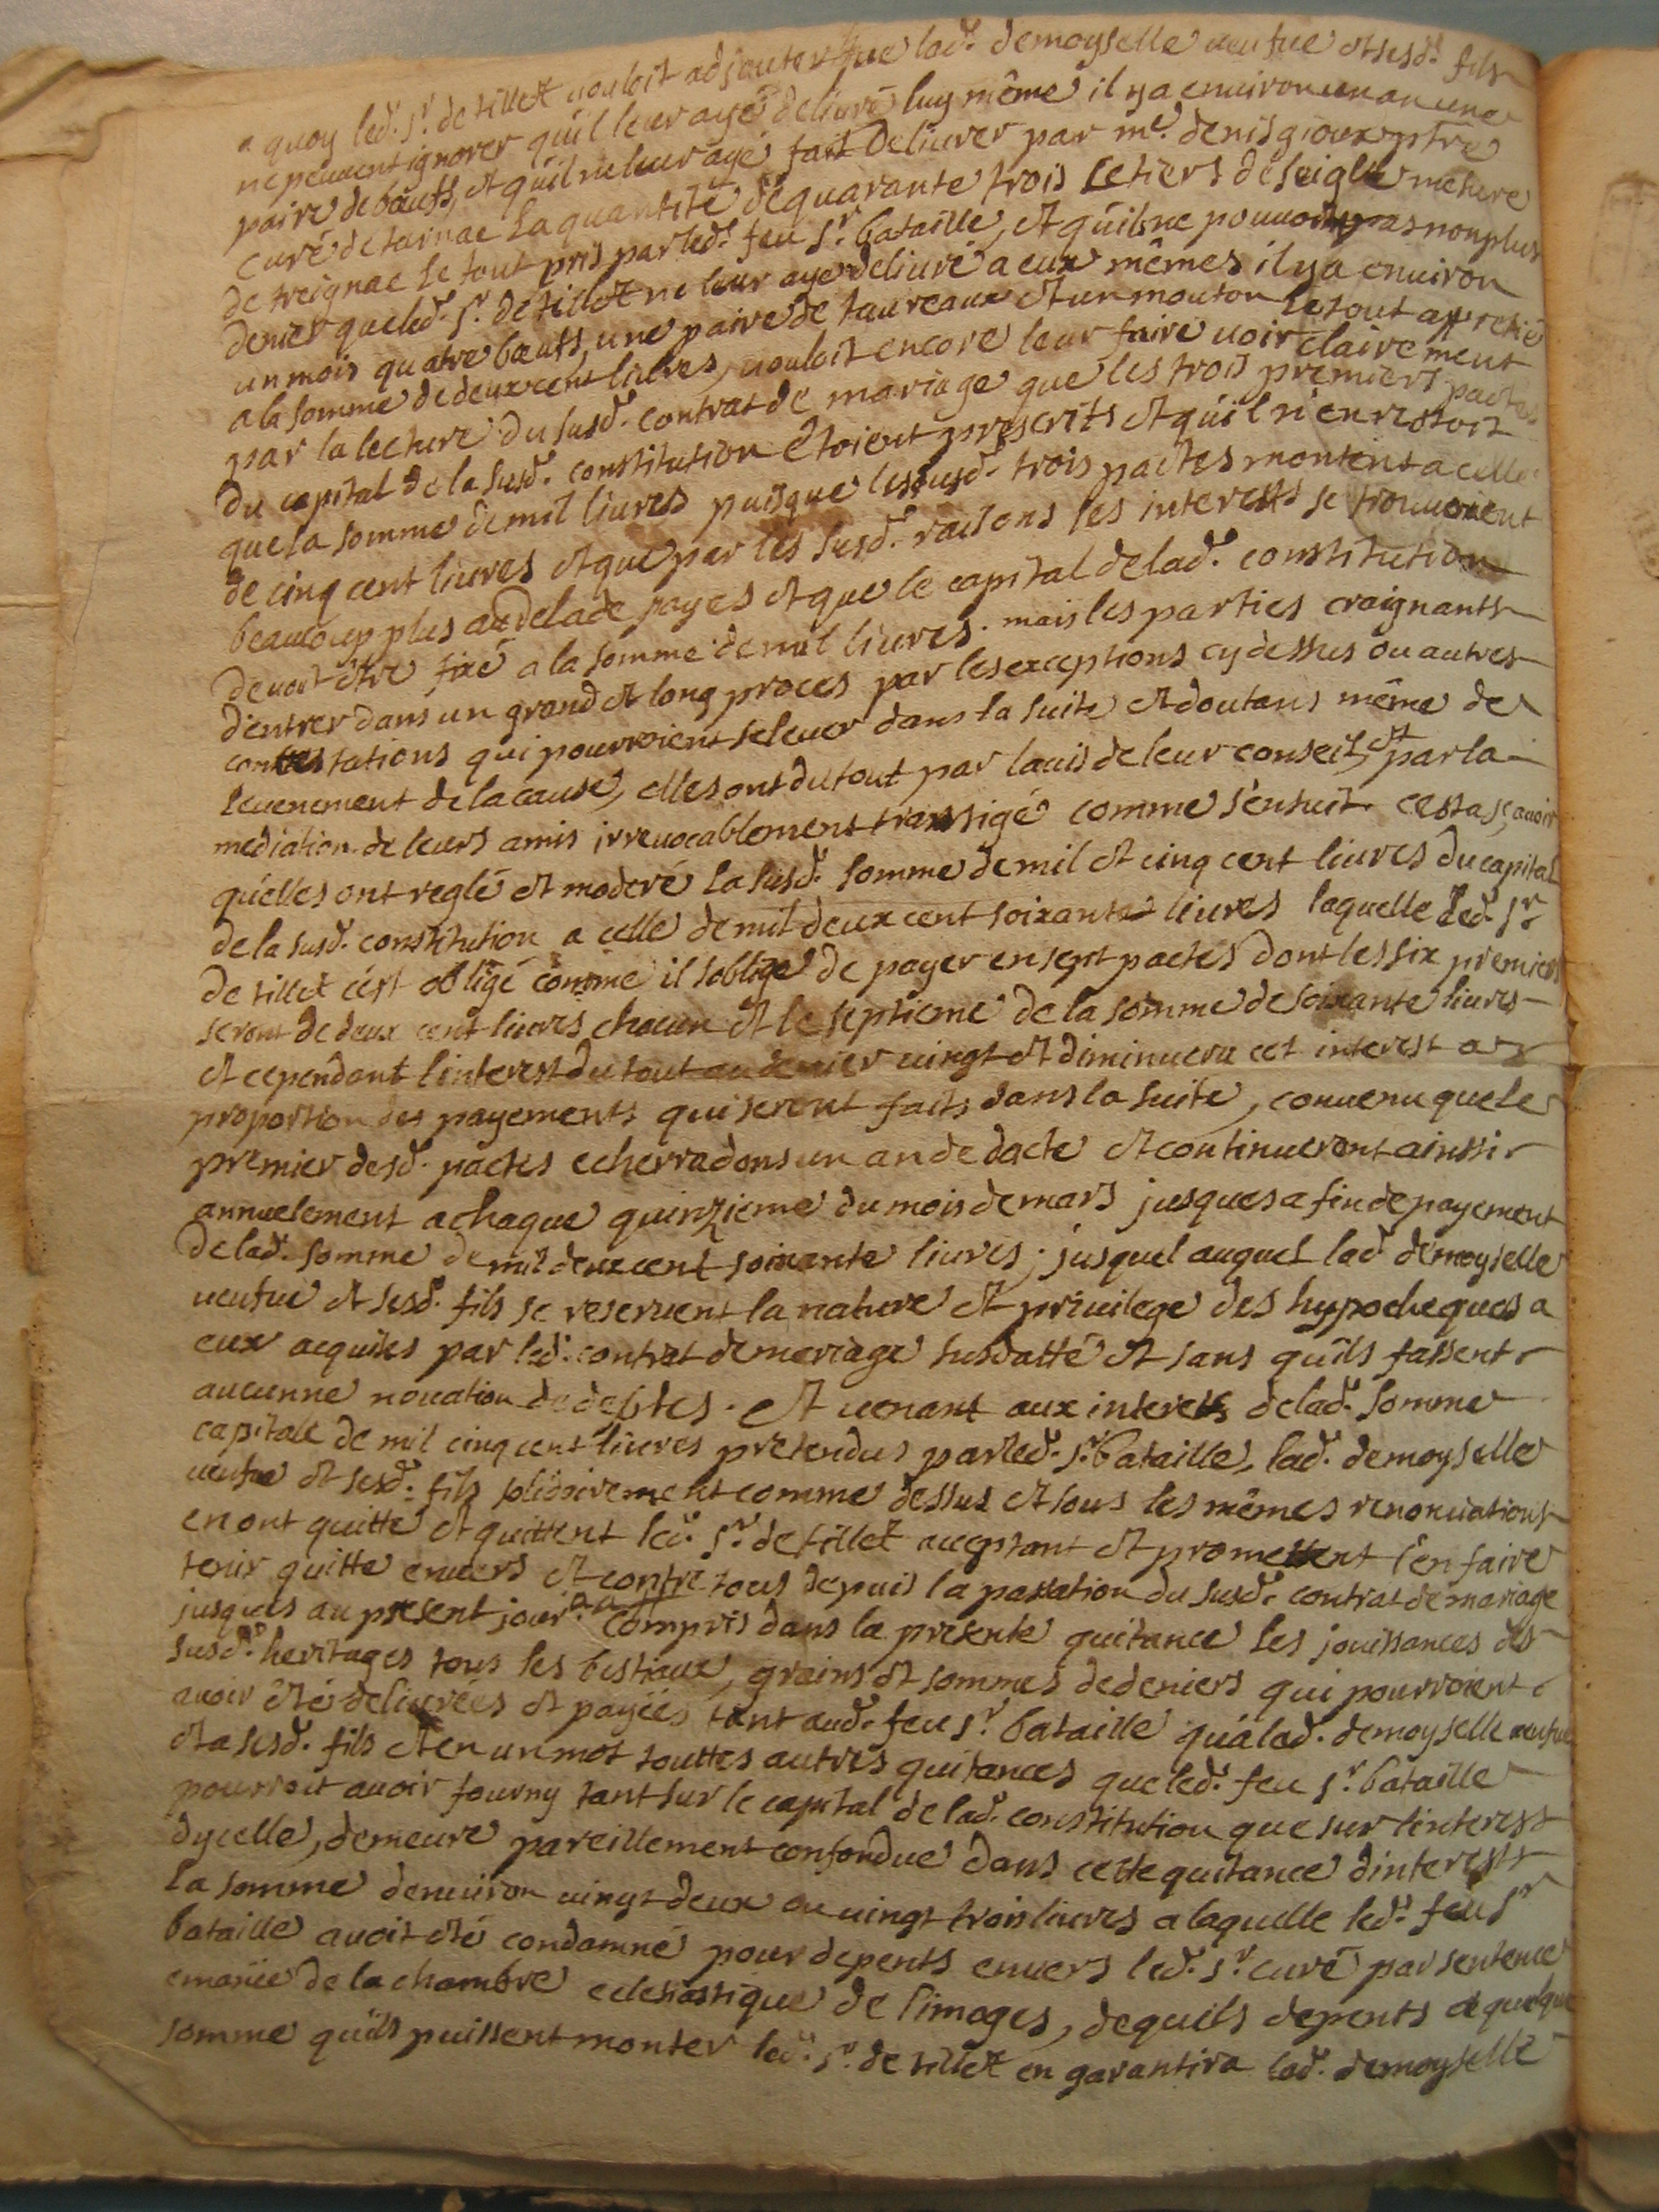 a quoy led. sr. de tillet vouloit adjouter que lad. demoyselle veufue et sesd. fils
ne peuvent ignorer qu'il leur ayé delivré luy même il y a environ un an une
paire de bœufs, et qu'il ne leur ayé fait delivrer par me. denis gioux ptre
curé de tarnac la quantité de quarante trois setiers de seigle mesure
de treignac le tout pris par led. feu sr. bataille, et qu'ils ne pouvoint pas non plus
denier que led. sr. de tillet ne leur aye delivré a eux mêmes il y a environ
un mois quatre bœufs, une paire de taureaux et un mouton le tout appretié
a la somme de deux cent livres, vouloit encore leur faire voir clairement
par la lecture du susd. contrat de mariage que les trois premiers pactes
du capital de la susd. constitution étoient prescrits et qu'il n'en restoit
que la somme de mil livres puisque les susd. trois pactes montent a celle
de cinq cent livres et que par les susd. raisons les interests se trouvoient
beaucoup plus au dela de payes et que le capital de lad. constitution
devoit être fixé a la somme de mil livres. mais les parties craignants
d'entrer dans un grand et long proces par les exceptions cy dessus ou autres
contestations qui pourroient selever dans la suite et doutans même de
levenement de la cause, elles ont du tout par lavis de leur conseil, et par la
mediation de leurs amis irrevocablement transigé comme s'ensuit. cest a sçavoir
qu'elles ont reglé et moderé la susd. somme de mil et cinq cent livres du capital
de la susd. constitution a celle de mil deux cent soixante livres laquelle led. sr.
de tillet c'est obligé comme il soblige de payer en sept pactes dont les six premiers
seront de deux cent livres chacun et le septieme de la somme de soixante livres
et cependant linterest du tout au denier vingt et diminuera cet interest a
proportion des payements qui seront faits dans la suite, convenu que le
premier desd. pactes echerra dans un an de dacte et continueront ainssi
annuelement a chaque quinzieme du mois de mars jusques a fin de payement
de lad. somme de mil deux cent soixante livres; jusquel auquel lad. demoyselle
veufue et sesd. fils se reservent la nature et privilege des hypocheques a
eux acquises par led. contrat de mariage susdatté et sans qu'ils fassent
aucunne novation de debtes. Et venant aux interets de lad. somme
capitale de mil cinq cent livres pretendus par led. sr. bataille, lad. demoyselle
veufue et sesd. fils solidairement comme dessus et sous les mêmes renonciations
en ont quitté et quittent led. sr. de tillet acceptant et promettent l'en faire
tenir quitte envers et contre tous depuis la passation du susd. contrat de mariage
jusques au present jour. compris dans la presente quitance les jouissances des
susd. heritages tous les bestiaux, grains et sommes de deniers qui pourroient
avoir été delivrées et payées tant aud. feu sr. bataille qu'a lad. demoyselle veufue
et a sesd. fils et en un mot touttes autres quitances que led. feu sr. bataille
pourroit avoir fourny tant sur le capital de lad. constitution que sur linterest
dycelle, demeure pareillement confondue dans cette quitance d'interests
la somme denviron vingt deux ou vingt trois livres a laquelle led. feu sr
bataille avoit été condamné pour depents envers led. sr. curé par sentence
emanée de la chambre eclesiastique de limoges, dequels depents a quelque
somme qu'ils puissent monter led. sr. de tillet en garantira lad. demoyselle